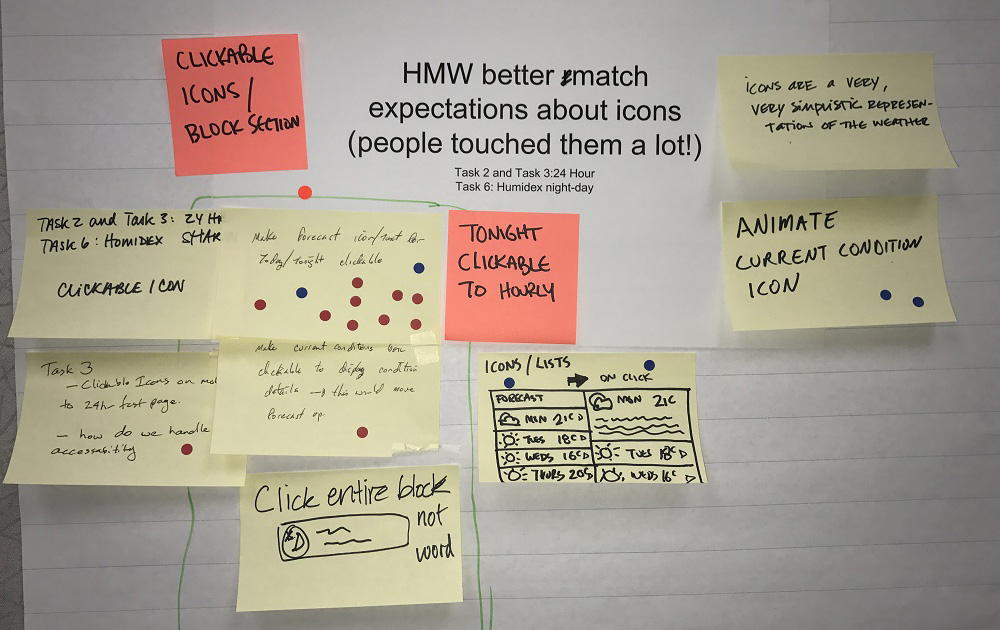 CLICKABLE
ICONS/
BLOCK SECTION
HMW better match
expectations about icons
(people touched them a lot!)
Task 2 and Task 3:24 Hour
Task 6: Humidex night-day
ICONS ARE A VERY,
VERY SIMPLISTIC REPRESEN-
TATIONS OF THE WEATHER
TASK 2 and Task 3: 24 HR
TASK 6: HOMIDEX
CLICKABLE ICON
Make forecast icon/text for
Today/tonight clickable
TONIGHT
CLICKABLE
TO HOURLY
ANIMATE
CURRENT CONDITION
ICON
Task 3
– Clickable Icons on
to 24hr fcst page.
– how do we handle
accessability
Make current conditions box
clickable to display condition
details → this would move
forecast up.
ICONS / LISTS
ON CLICK
FORECAST
MON 21C
TUES 18C
WEDS 16C
THURS 20C
MON 21C
TUES 18C
WEDS 16C
Click entire block
not
word